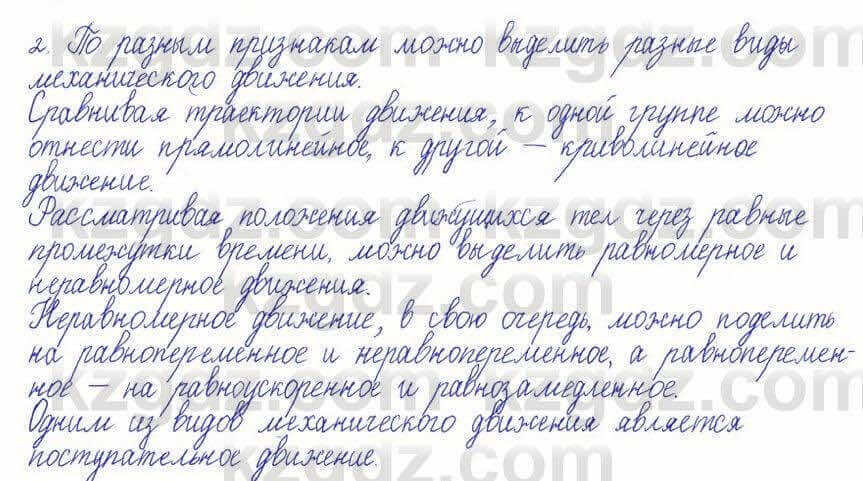 2. По разным признакам можно выделить разные виды
механического движения.
Сравнивая траектории движения, к одной группе можно
отнести прямолинейное, к другой — криволинейное
движение.
Рассматривая положения движущихся тел через равные
промежутки времени, можно выделить равномерное и
неравномерное движения.
Неравномерное движение, в свою очередь, можно поделить
на равнопеременное и неравнопеременное, а равноперемен-
ное — на равноускоренное и равнозамедленное.
Одним из видов механического движения является
поступательное движение.